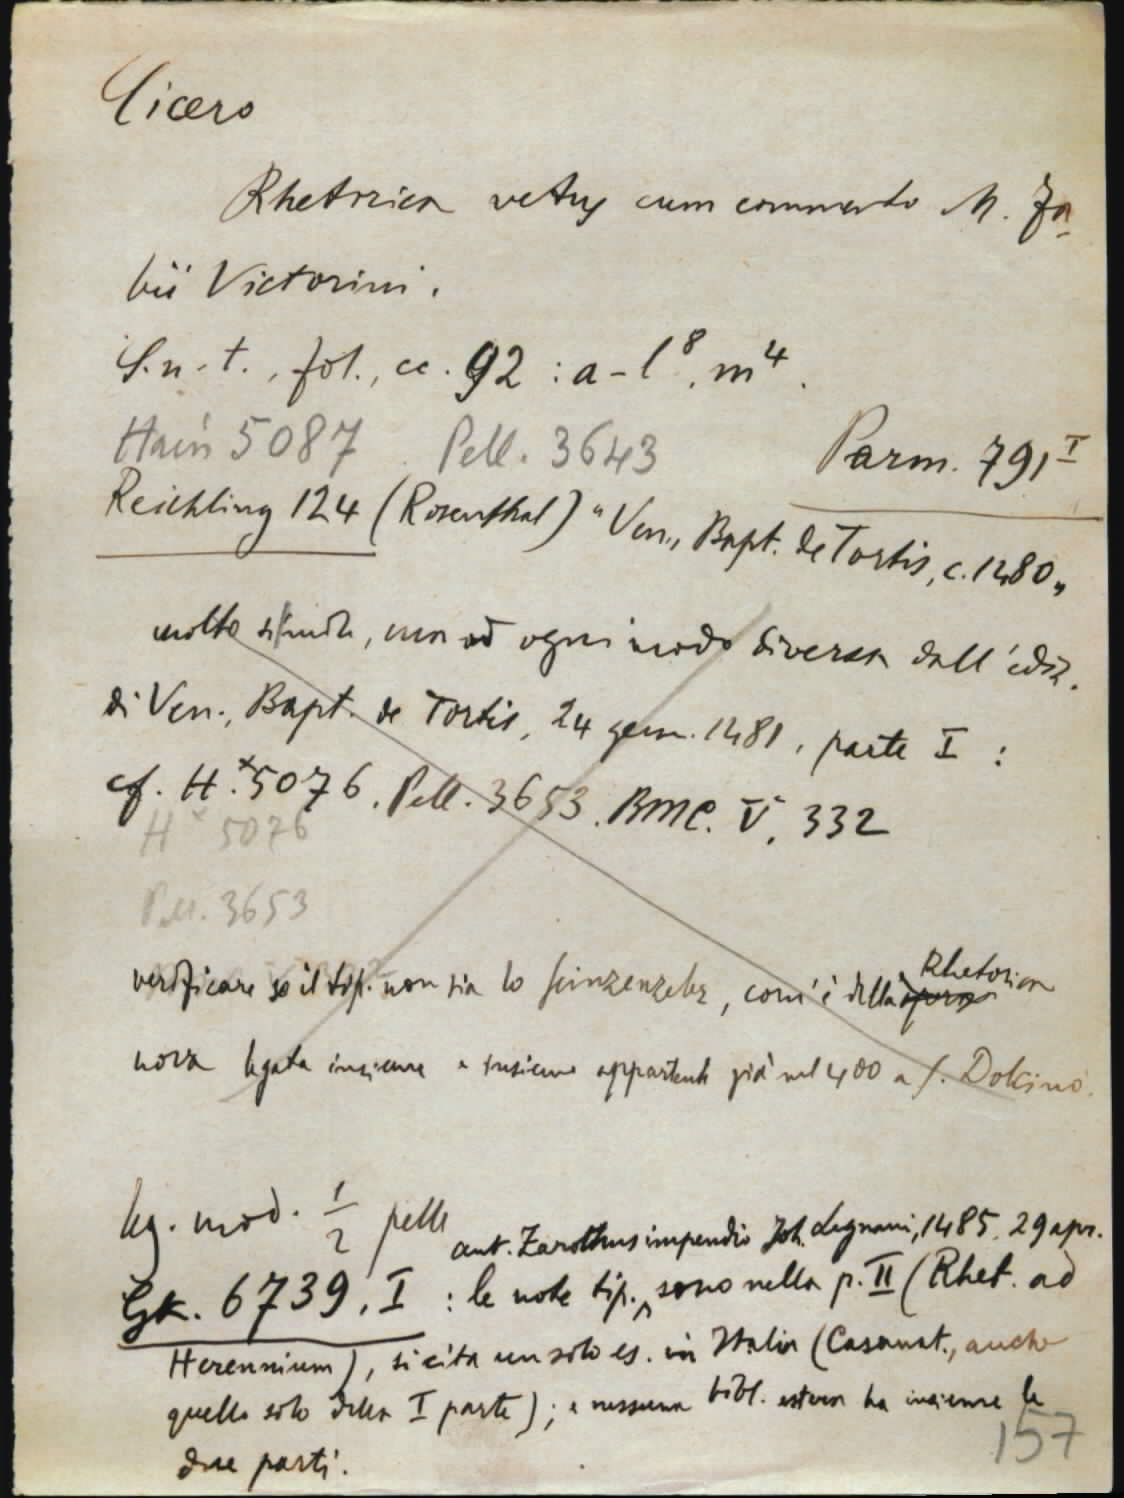 Cicero
Rhetorica vetus cum commento M. Fa-
bii Victorini.
S. n. t., fol., cc. 92 : a-l⁸, m⁴.
Hain 5087 Pell. 3643
Parm. 791 I
Reichling 124 (Rosenthal) "Ven., Bapt. de Tortis, c. 1480"
molto simile, ma ad ogni modo diversa dall'ediz.
di Ven., Bapt. de Tortis, 24 genn. 1481, parte I :
cf. H. *5076. Pell. 3653. BMC. V, 332
H * 5076
Pell. 3653
verificare se il tip. non sia lo Scinzenzeler, com'è della Rhetorica
nova legata insieme e insieme appartenente già nel 400 a f. Dolcino.
leg. mod. 1/2 pelle
ant. Zarothus impendio Joh. Legnani, 1485. 29 apr.
Gk. 6739, I : le note tip. ^ sono nella p. II (Rhet. ad
Herennium), si cita un solo es. in Italia (Casanat., anche
quello solo della I parte); e nessuna bibl. estera ha insieme le
due parti.
157